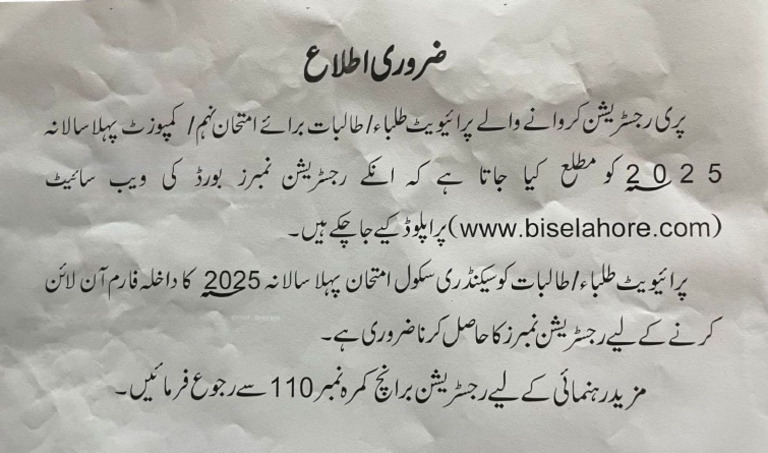 ضروری اطلاع
پری رجسٹریشن کروانے والے پرائیویٹ طلباء/طالبات برائے امتحان نہم/ کمپوزٹ پہلا سالانہ
2025 کو مطلع کیا جاتا ہے کہ انکے رجسٹریشن نمبرز بورڈ کی ویب سائیٹ
(www.biselahore.com) پر اپلوڈ کیے جا چکے ہیں۔
پرائیویٹ طلباء/طالبات کو سیکنڈری سکول امتحان پہلا سالانہ 2025 کا داخلہ فارم آن لائن
کرنے کے لیے رجسٹریشن نمبرز کا حاصل کرنا ضروری ہے۔
مزید رہنمائی کے لیے رجسٹریشن برانچ کمرہ نمبر 110 سے رجوع فرمائیں۔